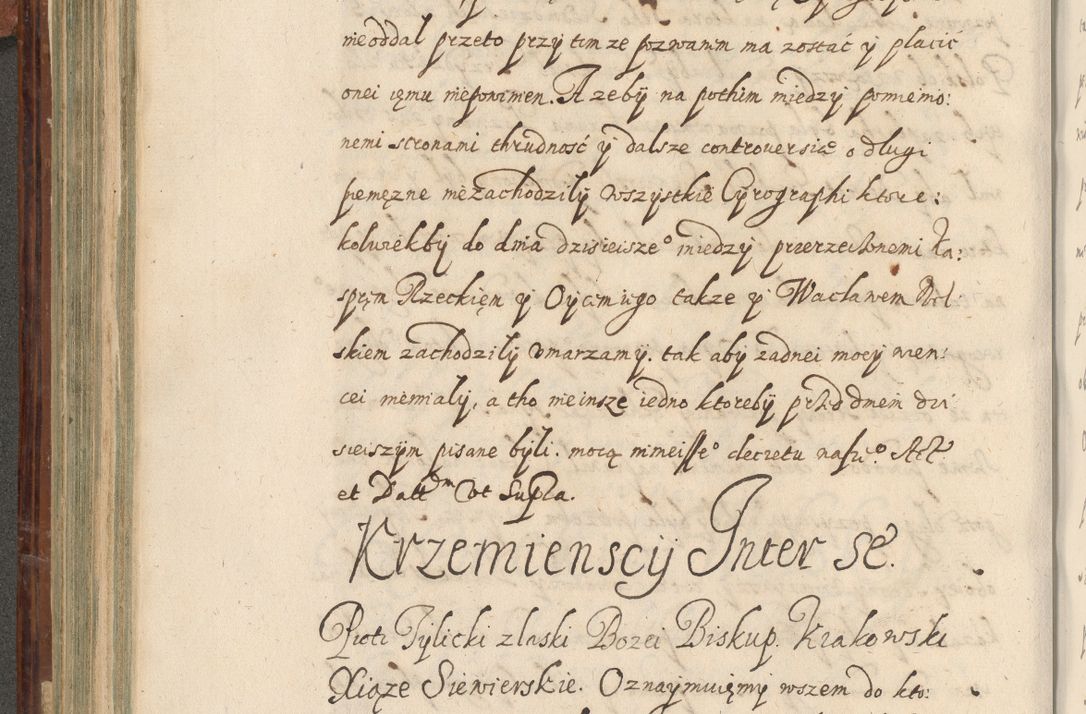 nieoddal przeto przy tem ze pozwanim ma zostać y placić
onei iemu niepowinien. A zeby na pothim miedzy pomiemio:
nemi stronami thrudność y dalsze controversiae o dlugi
pemęzne niezachodzily wszystkie Cyrographi ktore:
kolwiekby do dnia dzisieisze° miedzy przerzeczonemi Ka:
sprem Rzeckięm y Oycem iego takze y Wacławem Rzel
skiem zachodzily vmarzamy. tak aby zadnei mocy wien:
cei niemialy, a tho nieinsze iedno ktoreby przed dniem dzi
sieiszym pisane byli. mocą ninieisse° decretu nasze° Act
et Datt vt Supra.
Krzemienscy Inter se.
Piotr Tylicki z laski Bozei Biskup Krakowski
Xiąze Siewierskie. Oznaymuięmy wszem do kto: